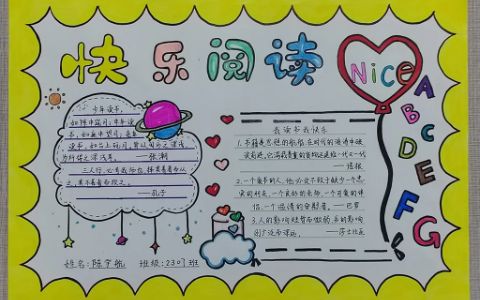 快乐阅读
Nice
A
B
C
D
E
F
G
少年读书，
如隙中窥月；中年读
书，如庭中望月；老年
读书，如台上玩月，皆以阅历之浅深
为所得之浅深耳。——张潮
三人行，必有我师也，择其善者而从
之，其不善者而改之。
——孔子
我读书我快乐
1.书籍是思想的航船，在时代的波涛中破
浪前进，它满载贵重的
一代又一代
——培根
2.一个爱书的人，他必定不致于缺少一个忠
实的朋友，一个良好的老师，一个可爱的伴
侣，一个温情的安慰者。——巴罗
3.
——莎士比亚
姓名：陈宇航 班级：2307班